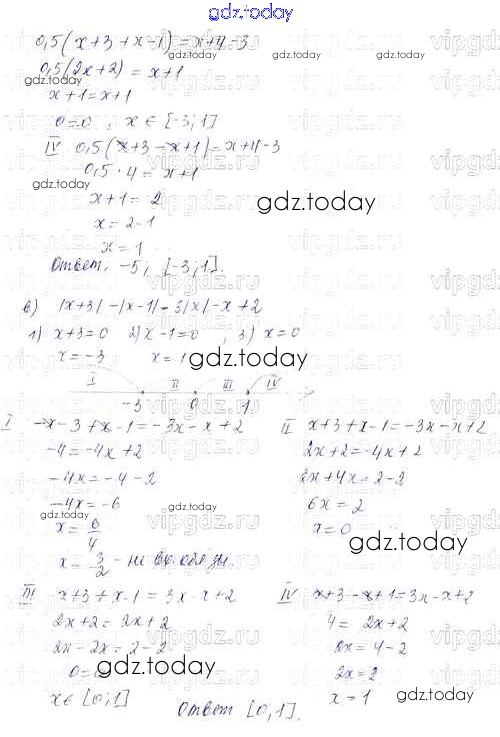 gdz.today
0,5(x+3+x-1)=x+4-3
0,5(2x+2)=x+1
x+1=x+1
0=0, x∈[-3;1]
IV 0,5(x+3-x+1)=x+4-3
0,5·4=x+1
x+1=2
x=2-1
x=1
Ответ: -5; [-3;1].
в) |x+3|-|x-1|=3|x|-x+2
1) x+3=0 2) x-1=0, 3) x=0
x=-3 x=1
I II III IV
-3 0 1
I -x-3+x-1=-3x-x+2
-4=-4x+2
-4x=-4-2
-4x=-6
x=6/4
x=3/2 - не
II x+3+x-1=-3x-x+2
2x+2=-4x+2
2x+4x=2-2
6x=2
x=0
III x+3+x-1=3x-x+2
2x+2=2x+2
2x-2x=2-2
0=0
x∈[0;1]
IV x+3-x+1=3x-x+2
4=2x+2
2x=4-2
2x=2
x=1
Ответ [0;1].
gdz.today
vipgdz.ru